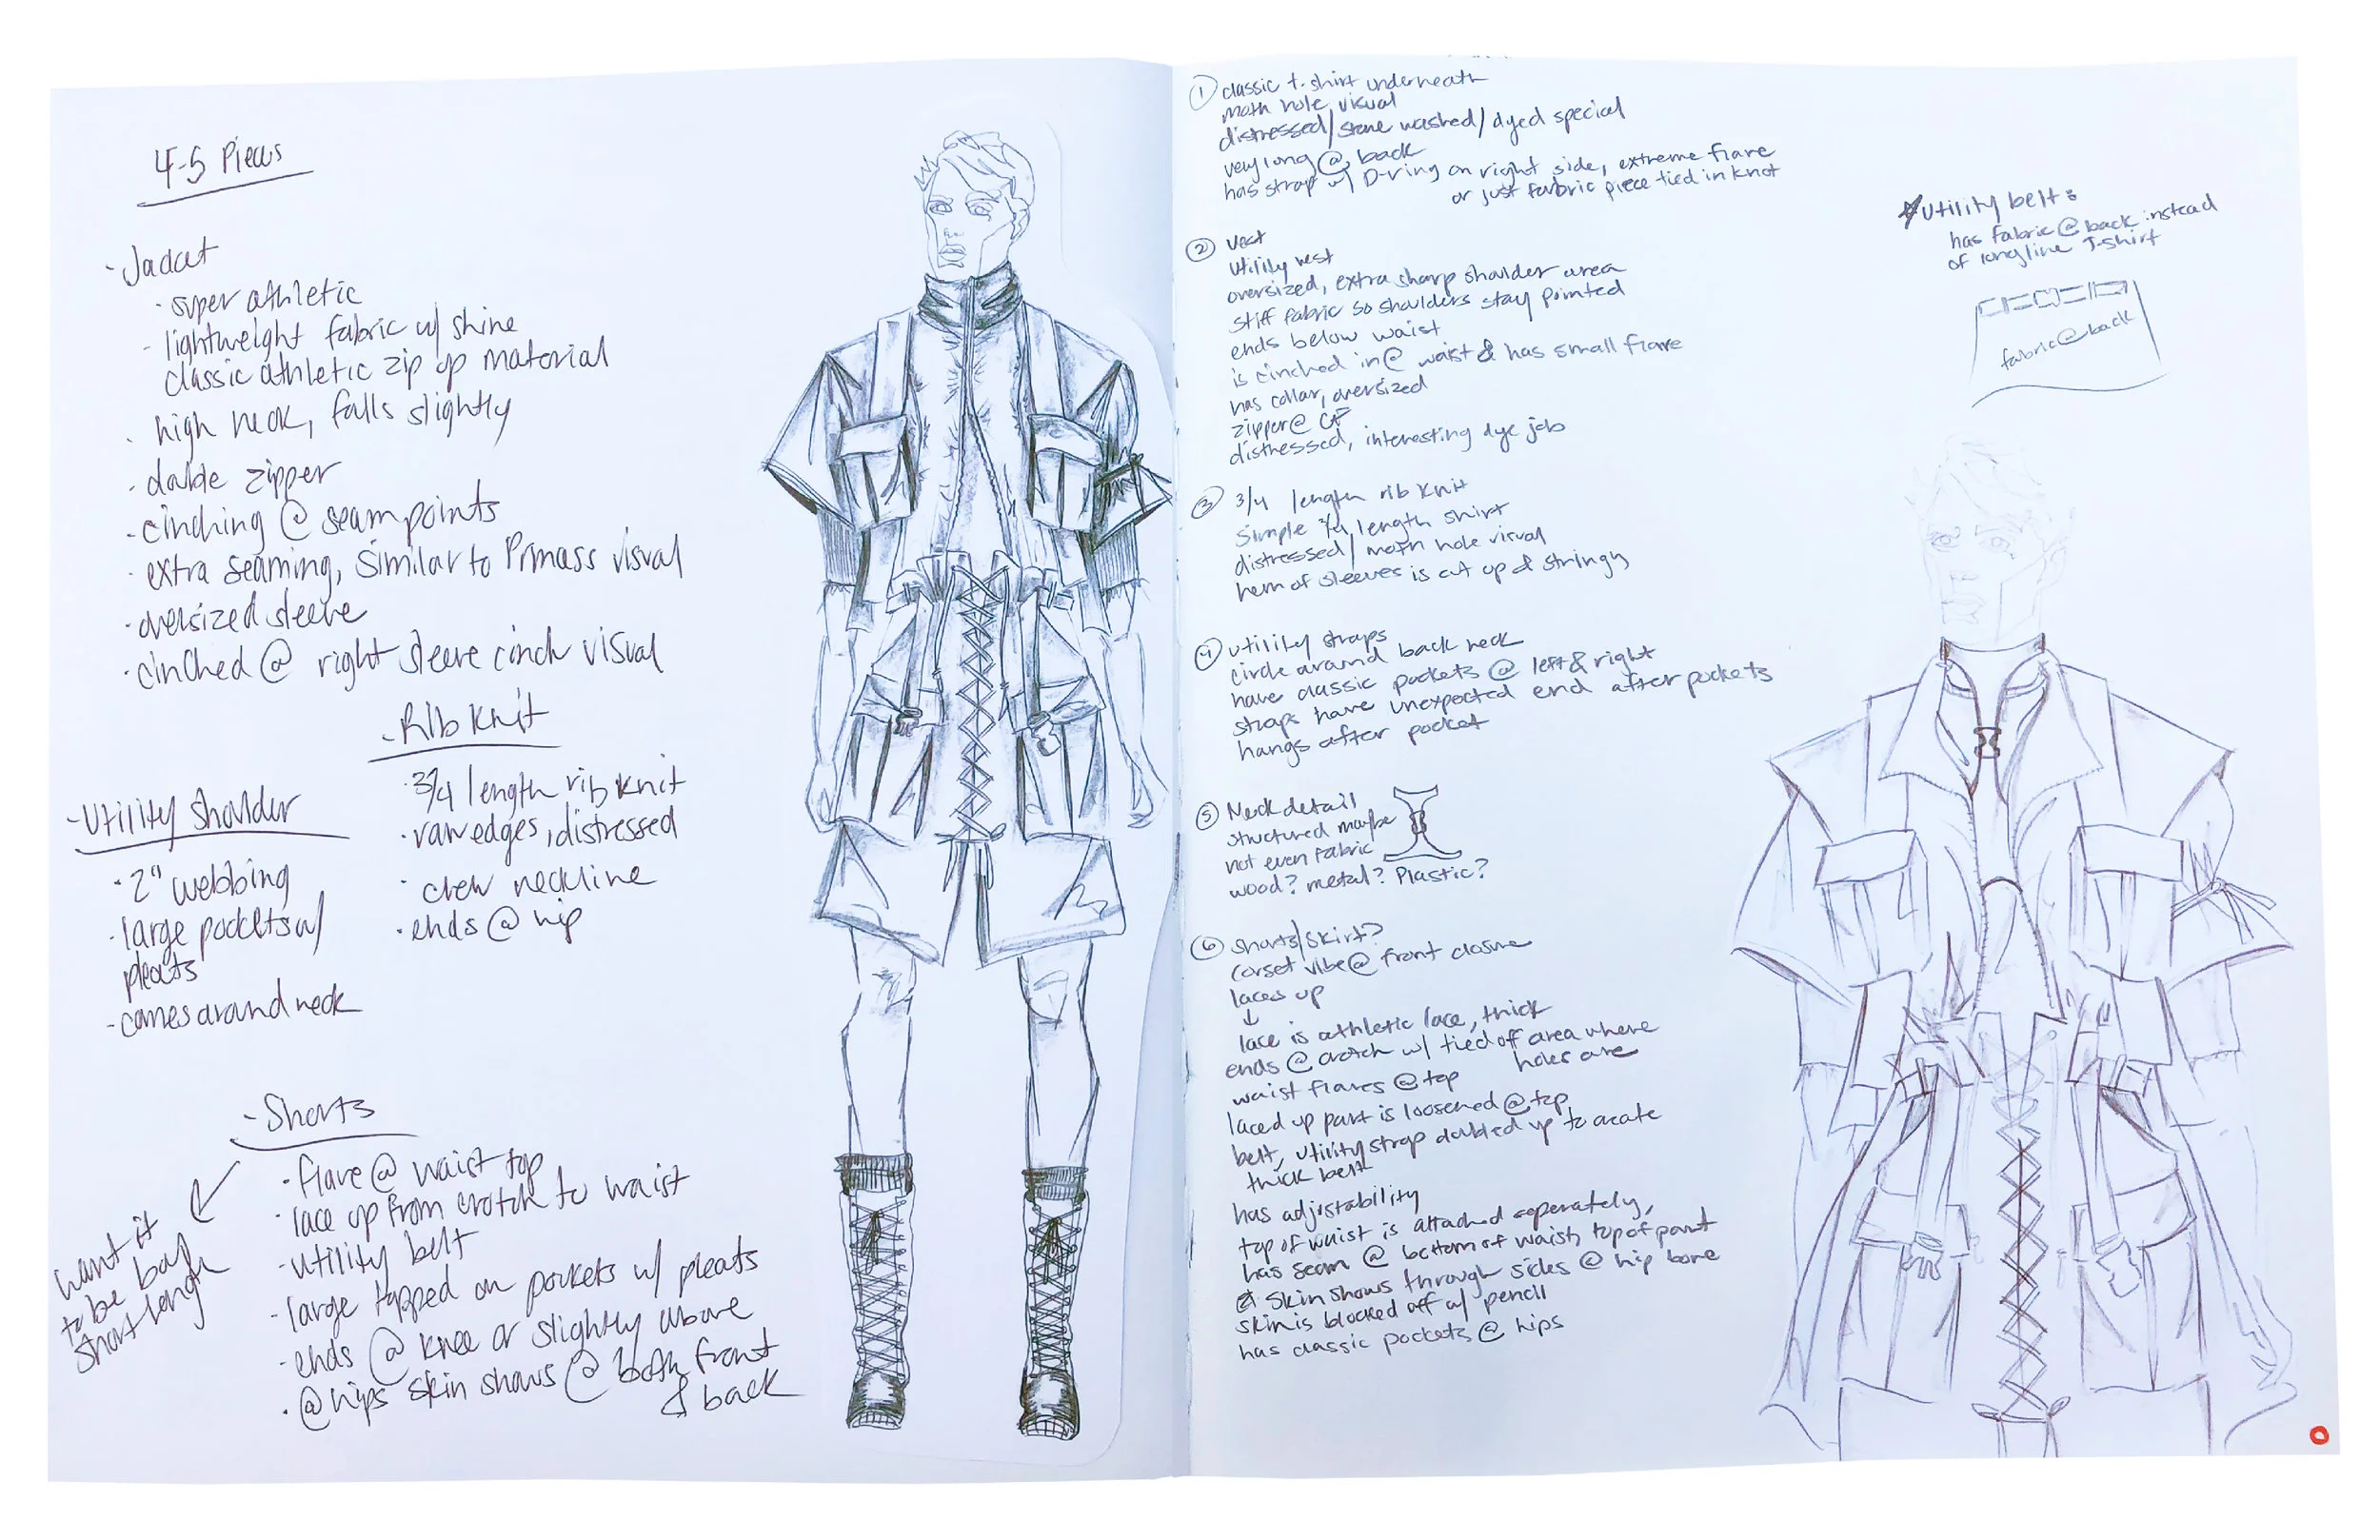 4-5 Pieces
- Jacket
· super athletic
- lightweight fabric w/ shine
classic athletic zip up material
· high neck, falls slightly
· double zipper
· cinching @ seam points
· extra seaming, similar to visual
· oversized sleeve
· cinched @ right sleeve cinch visual
- Rib Knit
· 3/4 length rib knit
· raw edges, distressed
· crew neckline
· ends @ hip
- Utility Shoulder
· 2" webbing
· large pockets w/
pleats
- comes around neck
- Shorts
· flare @ waist top
· lace up from crotch to waist
· utility belt
· large topped on pockets w/ pleats
- ends @ knee or slightly above
· @ hips skin shows @ both front
& back
want it
to be ball
short length
① classic t-shirt underneath
moth hole visual
distressed/stone washed/dyed special
very long @ back
has strap w/ D-ring on right side, extreme flare
or just fabric piece tied in knot
② Vest
Utility vest
oversized, extra sharp shoulder area
stiff fabric so shoulders stay pointed
ends below waist
is cinched in @ waist & has small flare
has collar, oversized
zipper @ CF
distressed, interesting dye job
③ 3/4 length rib knit
Simple 3/4 length shirt
distressed/moth hole visual
hem of sleeves is cut up & stringy
④ utility straps
circle around back neck
have classic pockets @ left & right
straps have unexpected end after pockets
hangs after pocket
⑤ Neck detail
structured maybe
not even fabric
wood? metal? Plastic?
⑥ Shorts/skirt?
corset vibe @ front closure
laces up
↓
lace is athletic lace, thick
ends @ crotch w/ tied off area where
holes are
waist flares @ top
laced up part is loosened @ top
belt, utility strap doubled up to create
thick belt
has adjustability
top of waist is attached seperately,
has seam @ bottom of waist, top of pant
skin shows through sides @ hip bone
skin is blocked off w/ pencil
has classic pockets @ hips
*Utility belt:
has fabric @ back instead
of longline T-shirt
fabric @ back